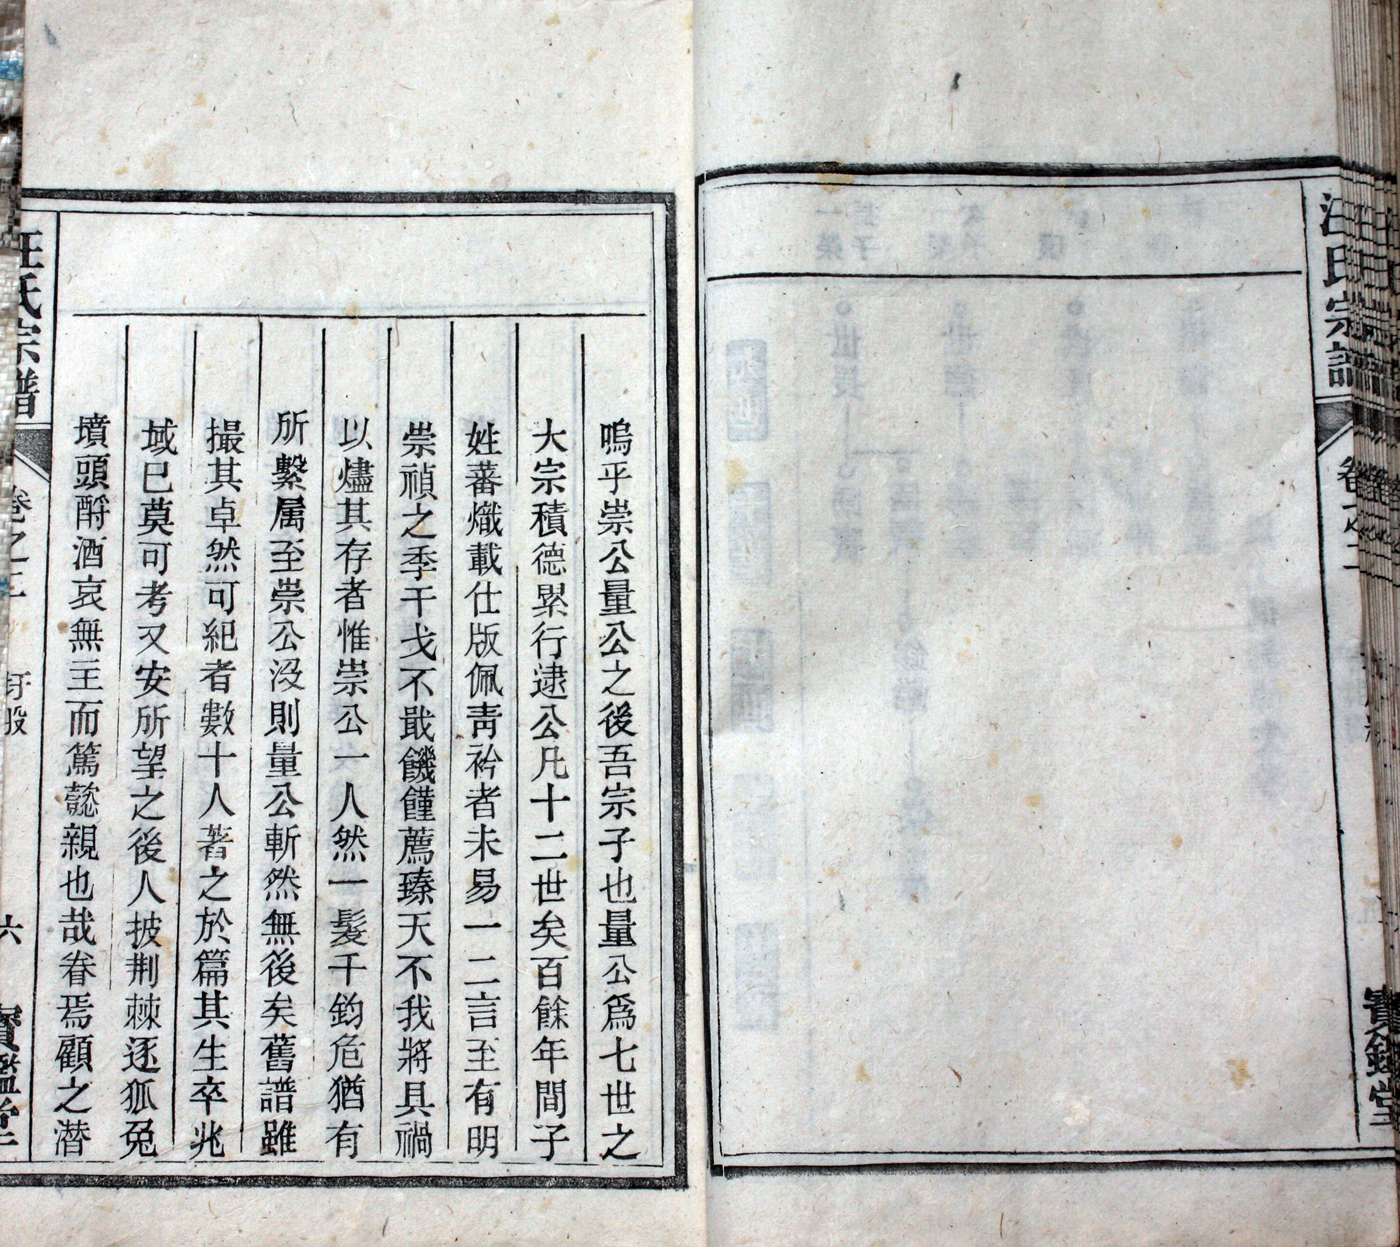 汪氏宗譜
卷之二
寳鑑堂
嗚乎崇公量公之後吾宗子也量公爲七世之
大宗積德累行逮公凡十二世矣百餘年間子
姓蕃熾載仕版佩靑衿者未易一二言至有明
崇禎之季干戈不戢饑饉薦臻天不我將具禍
以燼其存者惟崇公一人然一髮千鈞危猶有
所繫属至崇公沒則量公斬然無後矣舊譜雖
撮其卓然可紀者數十人著之於篇其生卒兆
域已莫可考又安所望之後人披荆棘逐狐兔
墳頭酹酒哀無主而篤懿親也哉眷焉顧之潜
汪氏宗譜
卷之二
六
寳鑑堂